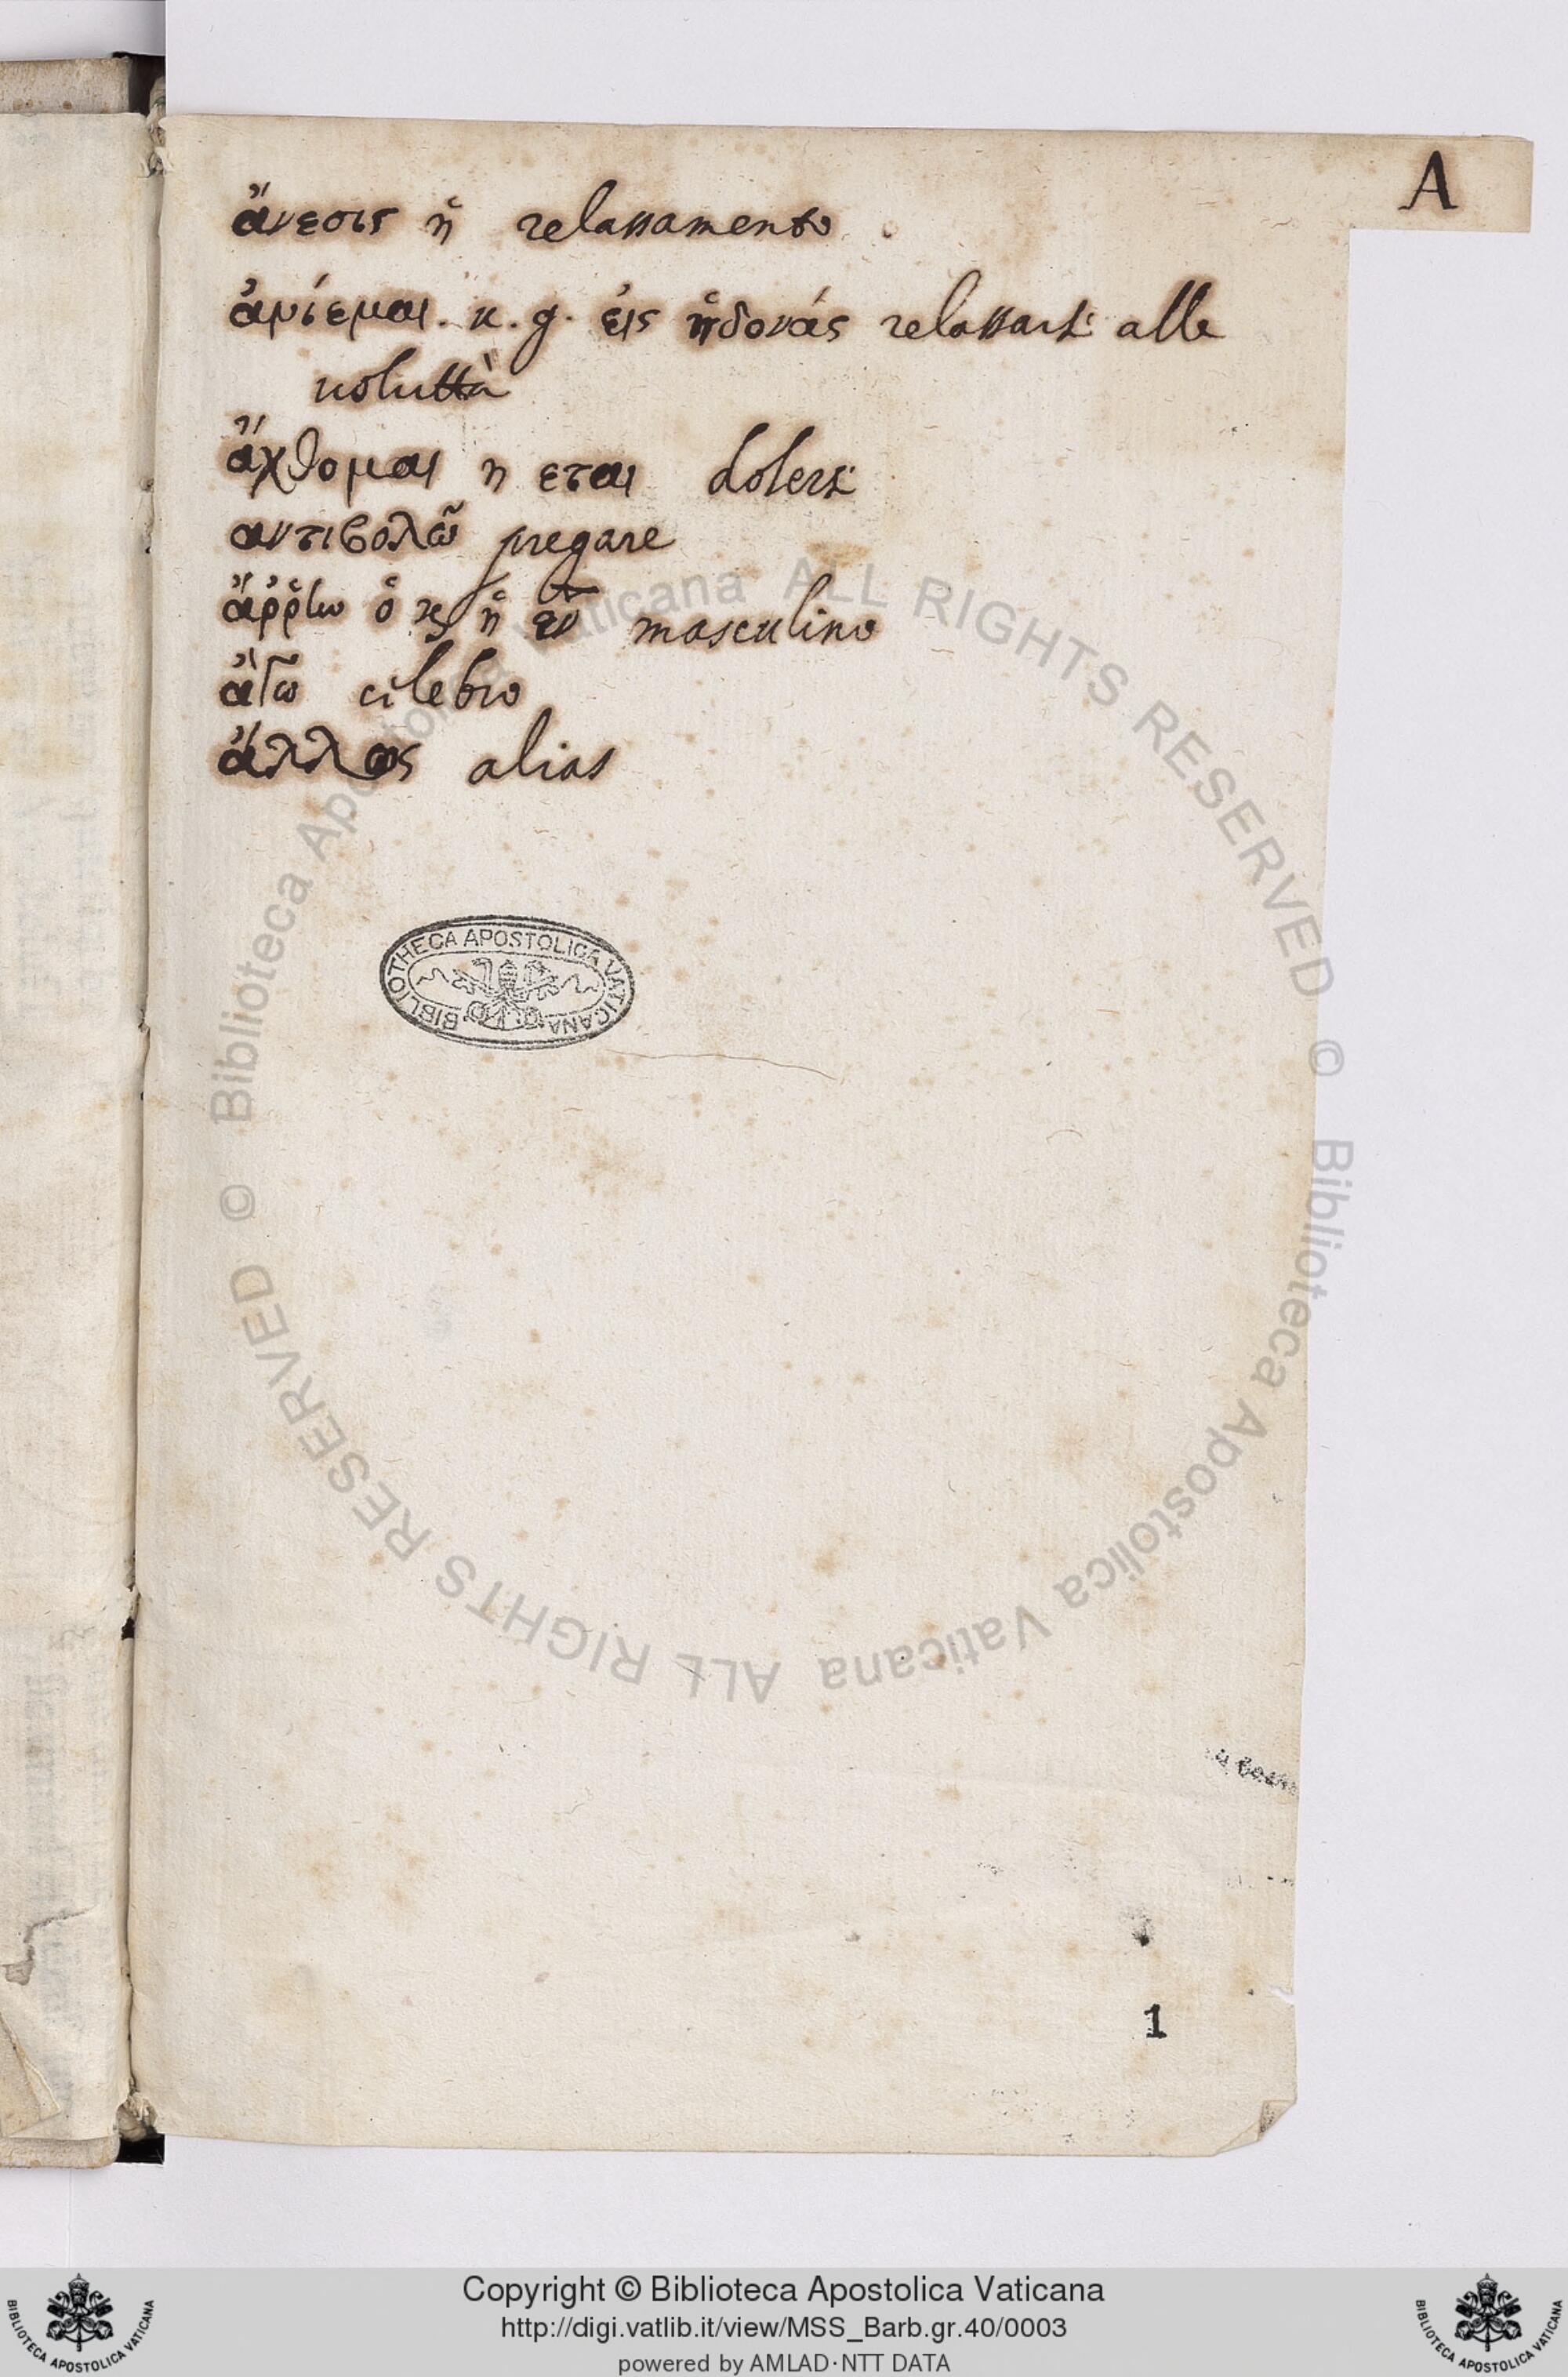 A
ἄνεσις ἡ relassamento
ἀνίεμαι. κ. g. εἰς ἡδονάς relassarsi alle
voluttà
ἄχθομαι η εται dolersi
αντιβολῶ pregare
ὁ ϗ ἡ masculino
celebro
ἄλλως alias
BIBLIOTHECA APOSTOLICA VATICANA
1
© Biblioteca Apostolica Vaticana ALL RIGHTS RESERVED © Biblioteca Apostolica Vaticana ALL RIGHTS RESERVED
Copyright © Biblioteca Apostolica Vaticana
http://digi.vatlib.it/view/MSS_Barb.gr.40/0003
powered by AMLAD·NTT DATA
BIBLIOTECA APOSTOLICA VATICANA
BIBLIOTECA APOSTOLICA VATICANA